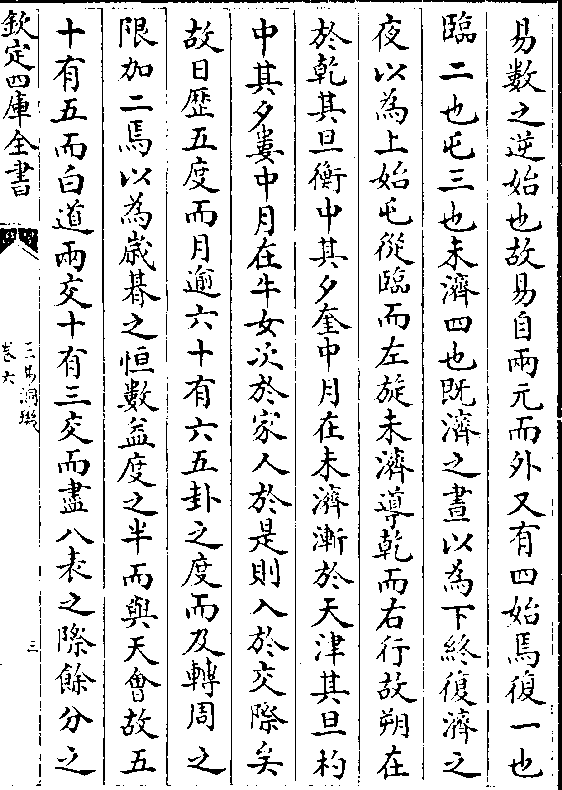 易數之逆始也故易自兩元而外又有四始焉復一也
臨二也屯三也未濟四也既濟之晝以為下終復濟之
夜以為上始屯從臨而左旋未濟導乾而右行故朔在
於乾其旦衡中其夕奎中月在未濟漸於天津其旦杓
中其夕婁中月在牛女次於家人於是則入於交際矣
故日歷五度而月逾六十有六五卦之度而及轉周之
限加二焉以為歲朞之恒數益度之半而與天會故五
十有五而白道兩交十有三交而盡八表之際餘分之
欽定四庫全書
三易洞璣
卷六
三